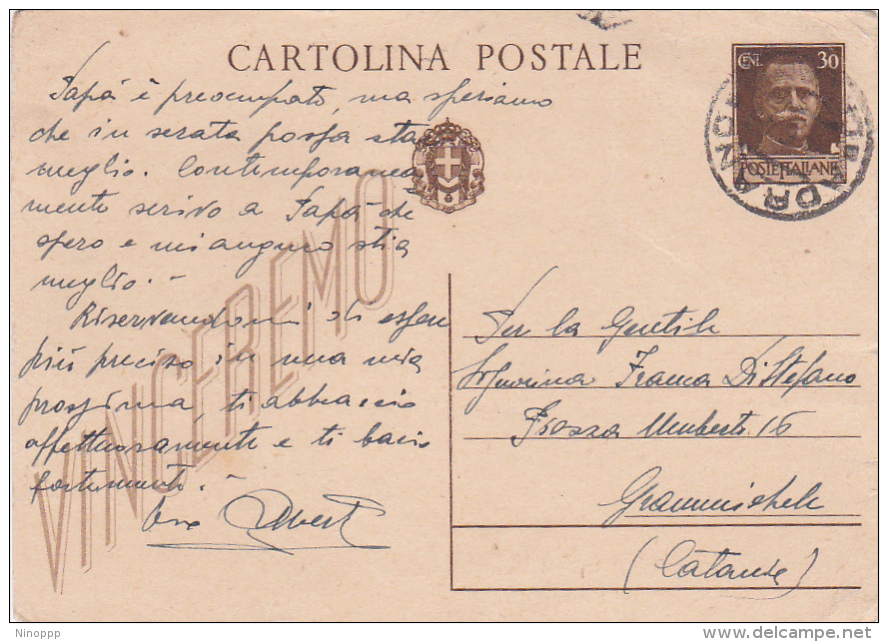 CARTOLINA POSTALE
CENT. 30
POSTE ITALIANE
ADRANO
VINCEREMO
Papà è preoccupato, ma speriamo
che in serata possa sta
meglio. Contemporanea
mente scrivo a Papà che
spero e mi auguro stia
meglio. -
Riservandomi di essere
più preciso in una mia
prossima, ti abbraccio
affettuosamente e ti bacio
fortemente. -
Per la Gentile
Signorina Franca Di Stefano
Piazza Umberto 16
Grammichele
(Catania)
Ninoppp
delcampe.net